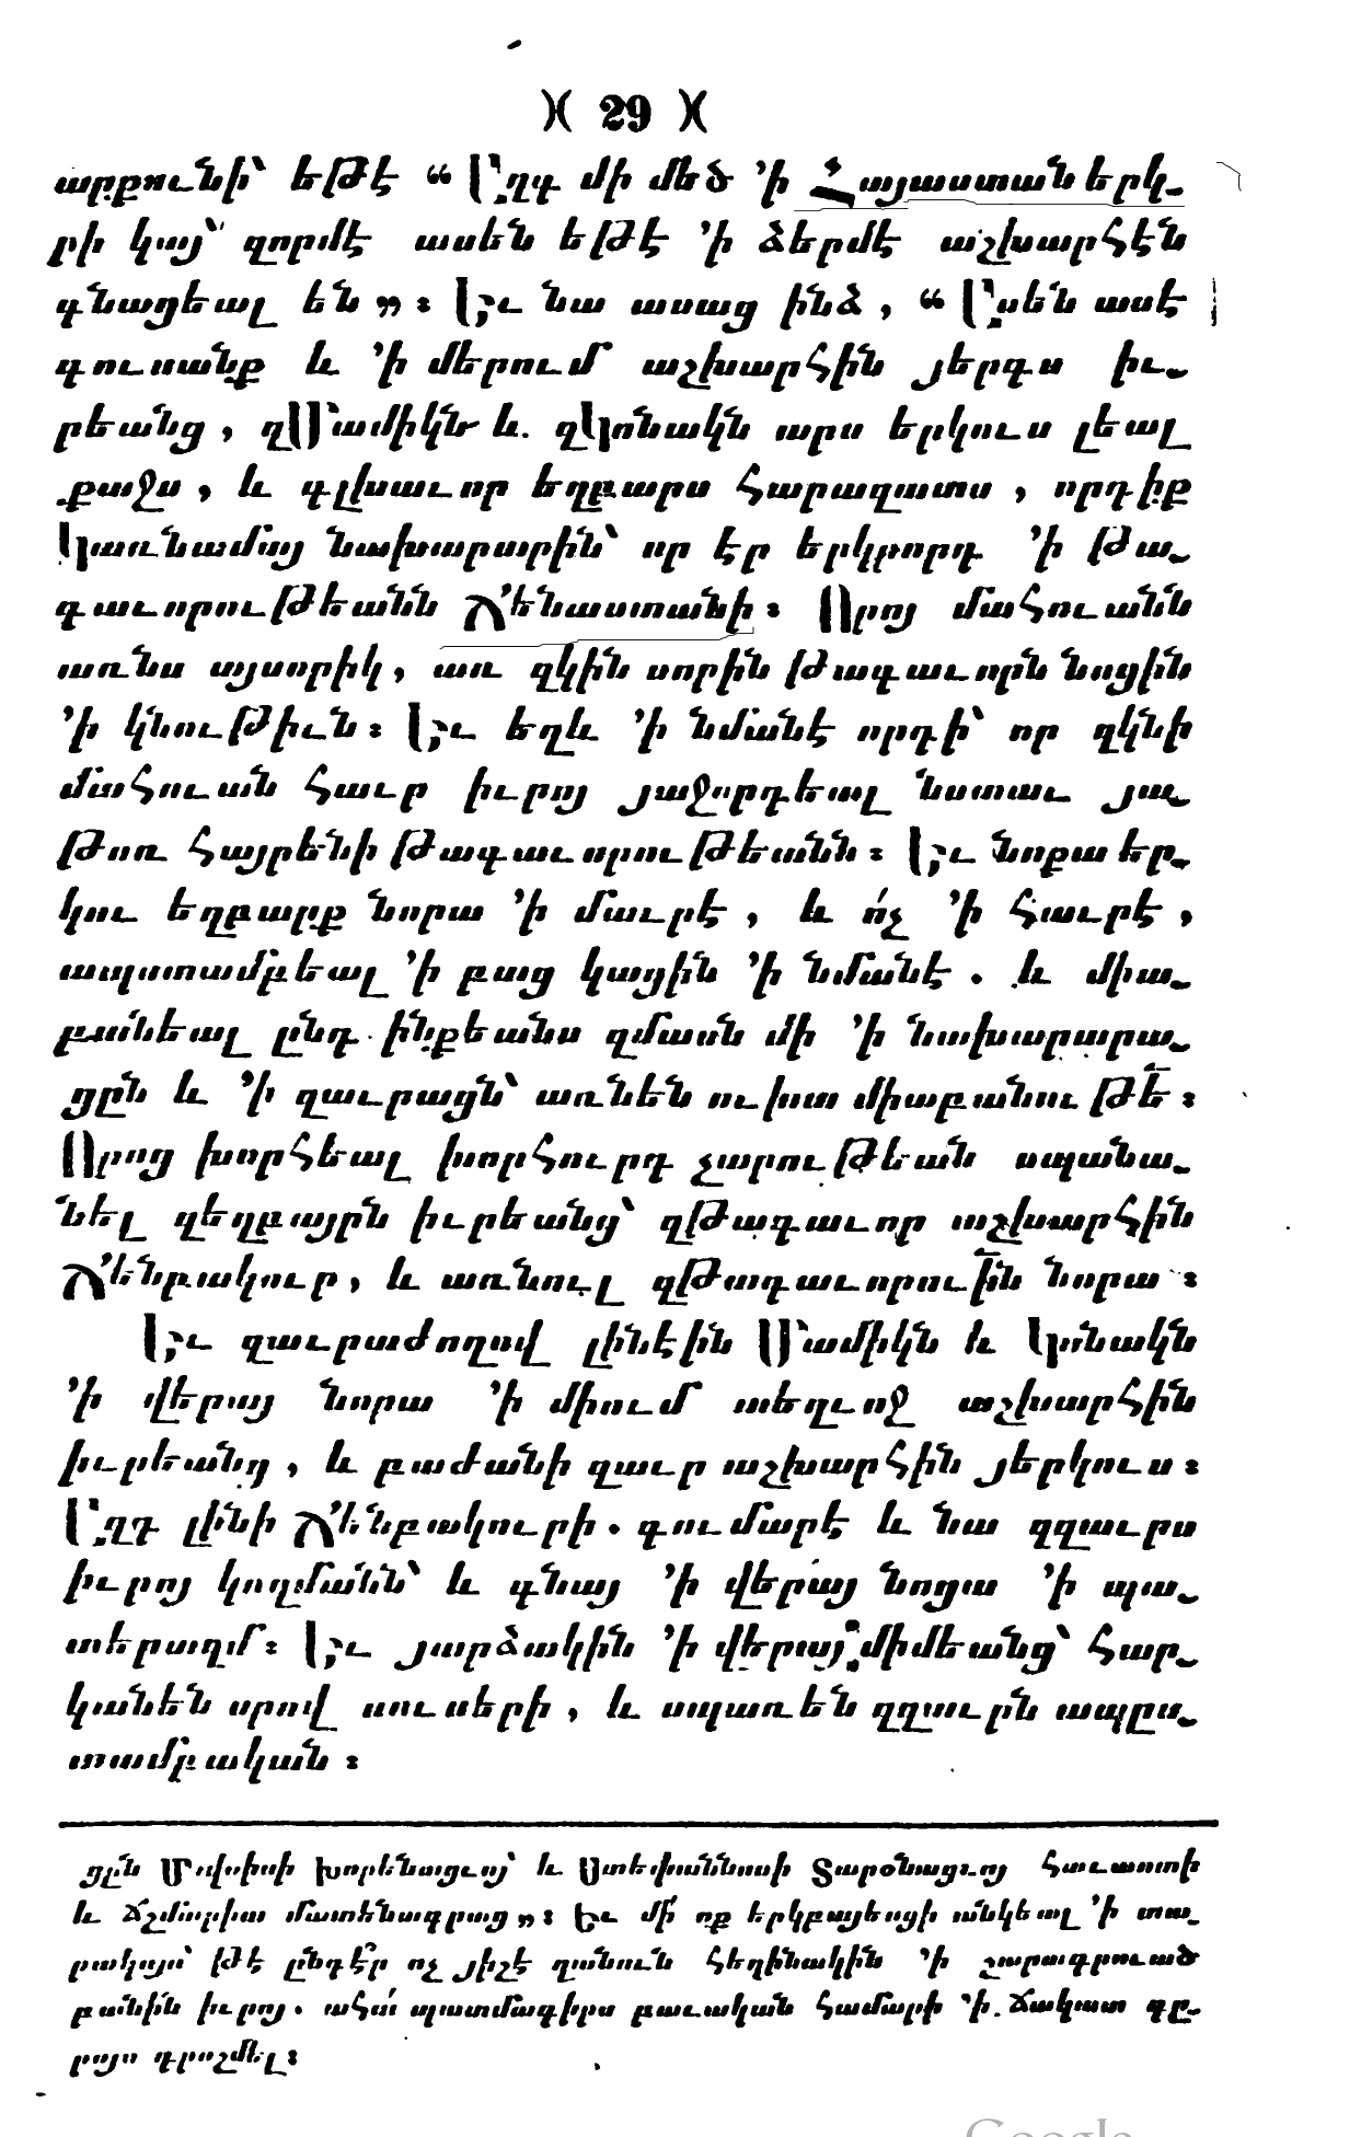 )( 29 )(
արքունի՝ եթէ “ Ազգ մի մեծ ՚ի Հայաստան երկ֊
րի կայ՝ զորմէ ասեն եթէ ՚ի ձերմէ աշխարհէն
գնացեալ են ”։ Եւ նա ասաց ինձ, “ Ասեն ասէ
գուսանք և ՚ի մերում աշխարհին յերգս իւ֊
րեանց, զՄամիկն և զԿոնակն արս երկուս լեալ
քաջս, և գլխաւոր եղբարս հարազատս, որդիք
Կառնամայ նախարարին՝ որ էր երկրորդ ՚ի թա֊
գաւորութեանն Ճենաստանի։ Որոյ մահուանն
առնս այսորիկ, առ զկին սորին թագաւորն նոցին
՚ի կնութիւն։ Եւ եղև ՚ի նմանէ որդի՝ որ զկնի
մահուան հաւր իւրոյ յաջորդեալ նստաւ յա֊
թոռ հայրենի թագաւորութեանն։ Եւ նոքա եր֊
կու եղբարք նորա ՚ի մաւրէ, և ո՛չ ՚ի հաւրէ,
ապստամբեալ ՚ի բաց կացին ՚ի նմանէ. և միա֊
բանեալ ընդ ինքեանս զմասն մի ՚ի նախարարա֊
ցըն և ՚ի զաւրացն՝ առնեն ուխտ միաբանութե՟։
Որոց խորհեալ խորհուրդ չարութեան սպանա֊
նել զեղբայրն իւրեանց՝ զթագաւոր աշխարհին
Ճենբակուր, և առնուլ զթագաւորուի՟ն նորա։
Եւ զաւրաժողով լինէին Մամիկն և Կոնակն
՚ի վերայ նորա ՚ի միում տեղւոջ աշխարհին
իւրեանց, և բաժանի զաւր աշխարհին յերկուս։
Ազդ լինի Ճենբակուրի. գումարէ և նա զզաւրս
իւրոյ կողմանն՝ և գնայ ՚ի վերայ նոցա ՚ի պա֊
տերազմ։ Եւ յարձակին ՚ի վերայ միմեանց՝ հար֊
կանեն սրով սուսերի, և սպառեն զզաւրն ապըս֊
տամբական։
ցըն Մովսիսի Խորենացւոյ՝ և Ստեփաննոսի Տարօնացւոյ հաւաստի
և ճշմարիտ մատենագրաց ”։ Եւ մի՛ ոք երկբայեսցի անկեալ ՚ի տա֊
րակոյս՝ թէ ընդէ՞ր ոչ յիշէ զանուն հեղինակին ՚ի շարագրուած
բանին իւրոյ. ահա՛ պատմագիրս բաւական համարի ՚ի ճակատ գը֊
րոյս դրոշմել։
Google